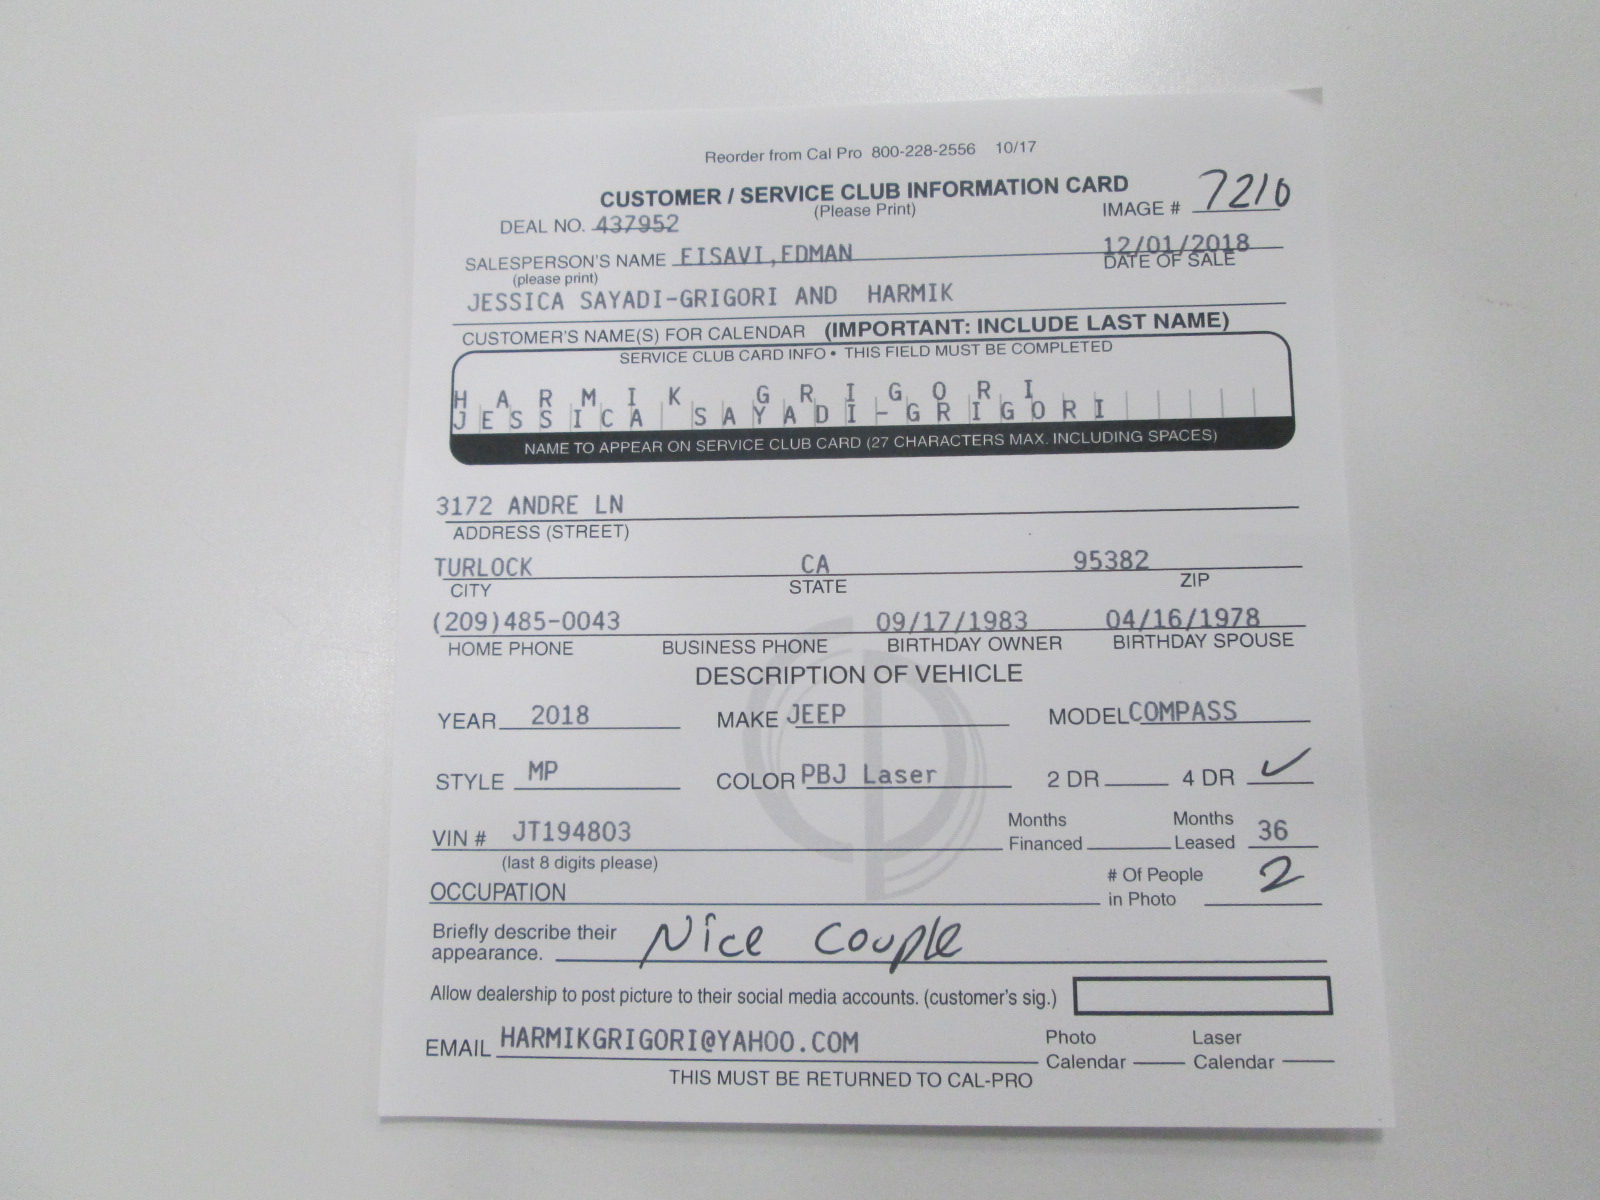 Reorder from Cal Pro 800-228-2556 10/17
CUSTOMER / SERVICE CLUB INFORMATION CARD
(Please Print)
IMAGE # 7210
DEAL NO. 437952
SALESPERSON'S NAME EISAVI,EDMAN 12/01/2018
(please print) DATE OF SALE
JESSICA SAYADI-GRIGORI AND HARMIK
CUSTOMER'S NAME(S) FOR CALENDAR (IMPORTANT: INCLUDE LAST NAME)
SERVICE CLUB CARD INFO • THIS FIELD MUST BE COMPLETED
HARMIK GRIGORI
JESSICA SAYADI-GRIGORI
NAME TO APPEAR ON SERVICE CLUB CARD (27 CHARACTERS MAX. INCLUDING SPACES)
3172 ANDRE LN
ADDRESS (STREET)
TURLOCK CA 95382
CITY STATE ZIP
(209)485-0043 09/17/1983 04/16/1978
HOME PHONE BUSINESS PHONE BIRTHDAY OWNER BIRTHDAY SPOUSE
DESCRIPTION OF VEHICLE
YEAR 2018 MAKE JEEP MODEL COMPASS
STYLE MP COLOR PBJ Laser 2 DR 4 DR ✓
VIN # JT194803 Months Financed Months Leased 36
(last 8 digits please)
OCCUPATION # Of People in Photo 2
Briefly describe their appearance. Nice Couple
Allow dealership to post picture to their social media accounts. (customer's sig.)
EMAIL HARMIKGRIGORI@YAHOO.COM Photo Calendar Laser Calendar
THIS MUST BE RETURNED TO CAL-PRO